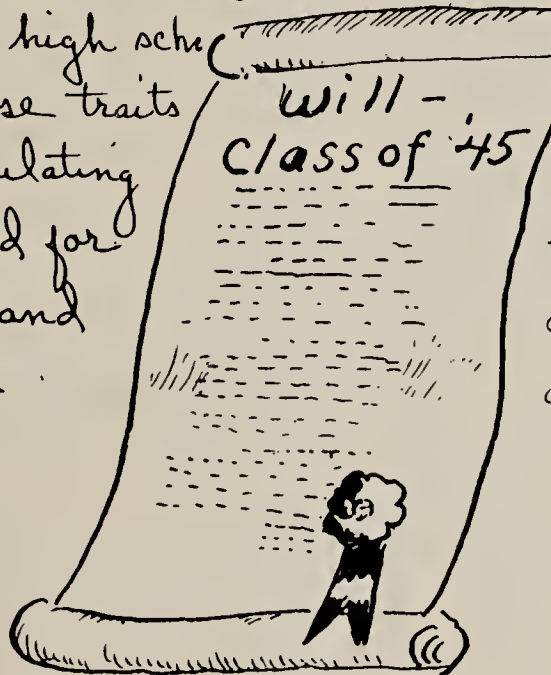 high
se traits
ulating
d for
and
Will -
Class of '45